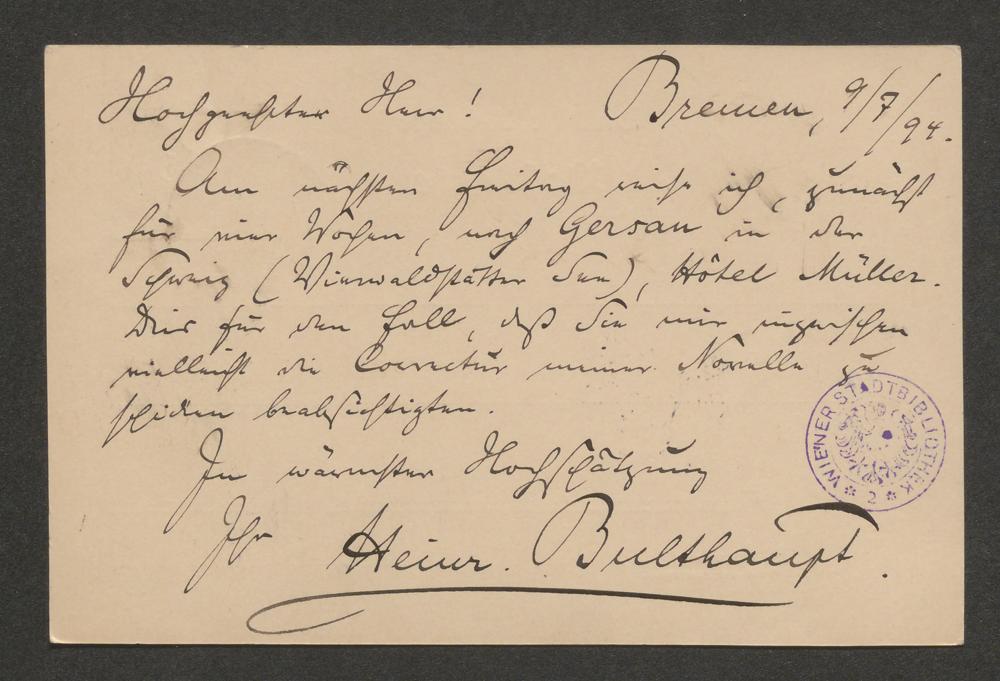 Hochgeehrter Herr! Bremen, 9/7/94.
Am nächsten Freitag reise ich, zunächst
für vier Wochen, nach Gersau in der
Schweiz (Vierwaldstätter See), Hôtel Müller.
Dies für den Fall, daß Sie mir inzwischen
vielleicht die Correctur meiner Novelle zu
schicken beabsichtigten.
In wärmster Hochschätzung
Ihr Heinr. Bulthaupt.
WIENER STADTBIBLIOTHEK * 2 *